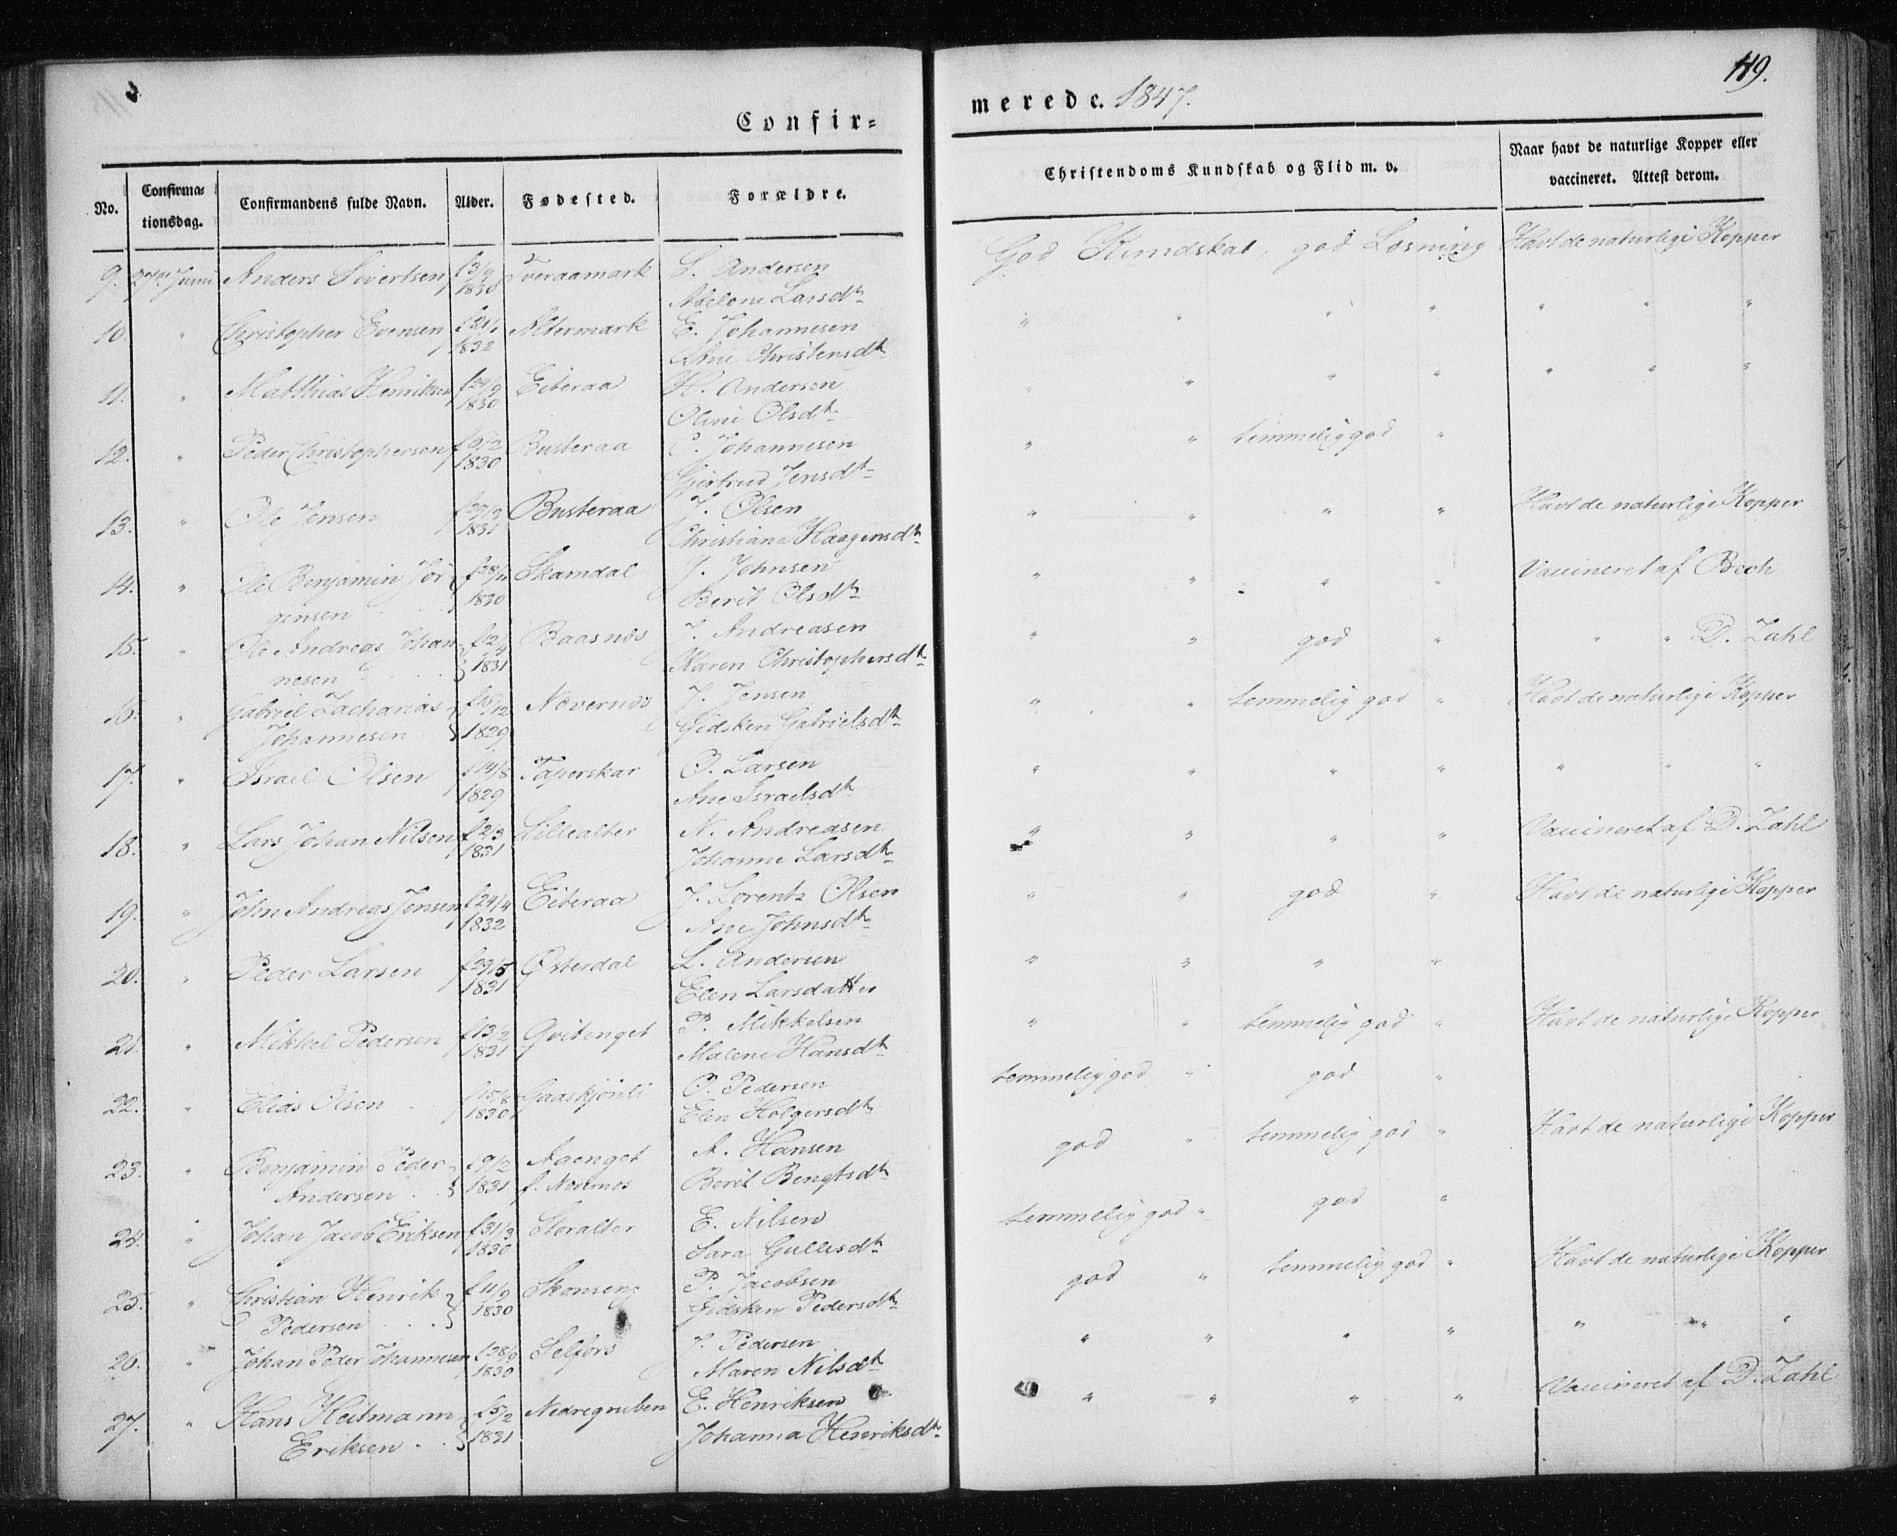 119.
Confir-
merede. 1847.
No.
Confirma-
tionsdag.
Confirmandens fulde Navn.
Alder.
Fødested.
Forældre.
Christendoms Kundskab og Flid m. v.
Naar havt de naturlige Kopper eller
vaccineret. Attest derom.
9. 27de Juni Anders Sivertsen f 3/9 Tveraamark S. Andersen God Kundskab, god Læsning Havt de naturlige Kopper
1830 Larsdtr
10. " Christopher Evensen Altermark E. Johannesen " " " " " " "
1832 Ane Christensdtr
11. " Matthias Henriksen f 24/9 Eiteraa H. Andersen " " " " " " "
1830 Oline Olsdtr
12. " Peder Christophersen Busteraa C. Johannesen " " temmelig god "
1830 Gjertrud Jensdtr
13. " Ole Jensen Busteraa J. Olsen " " " " Havt de naturlige Kopper
1831 Christiana Haagensdtr
14. " Ole Benjamin Jør- Skamdal J. Johnsen " " " " Vaccineret af Bech
gensen 1830 Berit Olsdtr
15. " Ole Andreas Johan- Baasnæs J. Andreasen " " god " " " D. Zahl
nesen 1831 Karen Christophersdtr
16. " Gabriel Zacharias f 15/12 Nævernæs J. Jensen " " temmelig god " Havt de naturlige Kopper
Johannesen 1829 Gidsken Gabrielsdtr
17. " Israel Olsen f 14/8 Taperskar O. Larsen " " " " " " "
1829 Ane Israelsdtr
18. " Lars Johan Nilsen f 2/3 Lillealter N. Andreasen " " " " Vaccineret af D. Zahl
1831 Johanne Larsdtr
19. " John Andreas Jensen f 24/4 Eiteraa J. Lorentz Olsen " " god " Havt de naturlige Kopper
1832 Ane Johnsdtr
20. " Peder Larsen f 29/5 Østerdal L. Andersen " " " "
1831 Elen Larsdatter
21. " Mikkel Pedersen f 13/2 Qvitenget P. Mikkelsen " " temmelig god " Havt de naturlige Kopper
1831 Malene Hansdtr
22. " Elias Olsen f 15/8 Gaaskjønli O. Pedersen temmelig god " god "
1830 Elen Holgersdtr
23. " Benjamin Peder f 9/2 Aaenget A. Hansen god " temmelig god " Havt de naturlige Kopper
Andersen 1831 f. Nævernæs Berit Bengtsdtr
24. " Johan Jacob Eriksen f 31/3 Storalter E. Nilsen temmelig god " god "
1830 Sara Gullesdtr
25. " Christian Henrik f 11/9 Skonseng P. Jacobsen god " temmelig god " Havt de naturlige Kopper
Pedersen 1830 Gidsken Pedersdtr
26. " Johan Peder Johannesen Selfors J. Pedersen " " " " " " "
1830 Maren Nilsdtr
27. " Hans Heitmann f 5/2 Nedregruben E. Henriksen " " " " Vaccineret af D. Zahl
Eriksen 1831 Johanna Henriksdtr